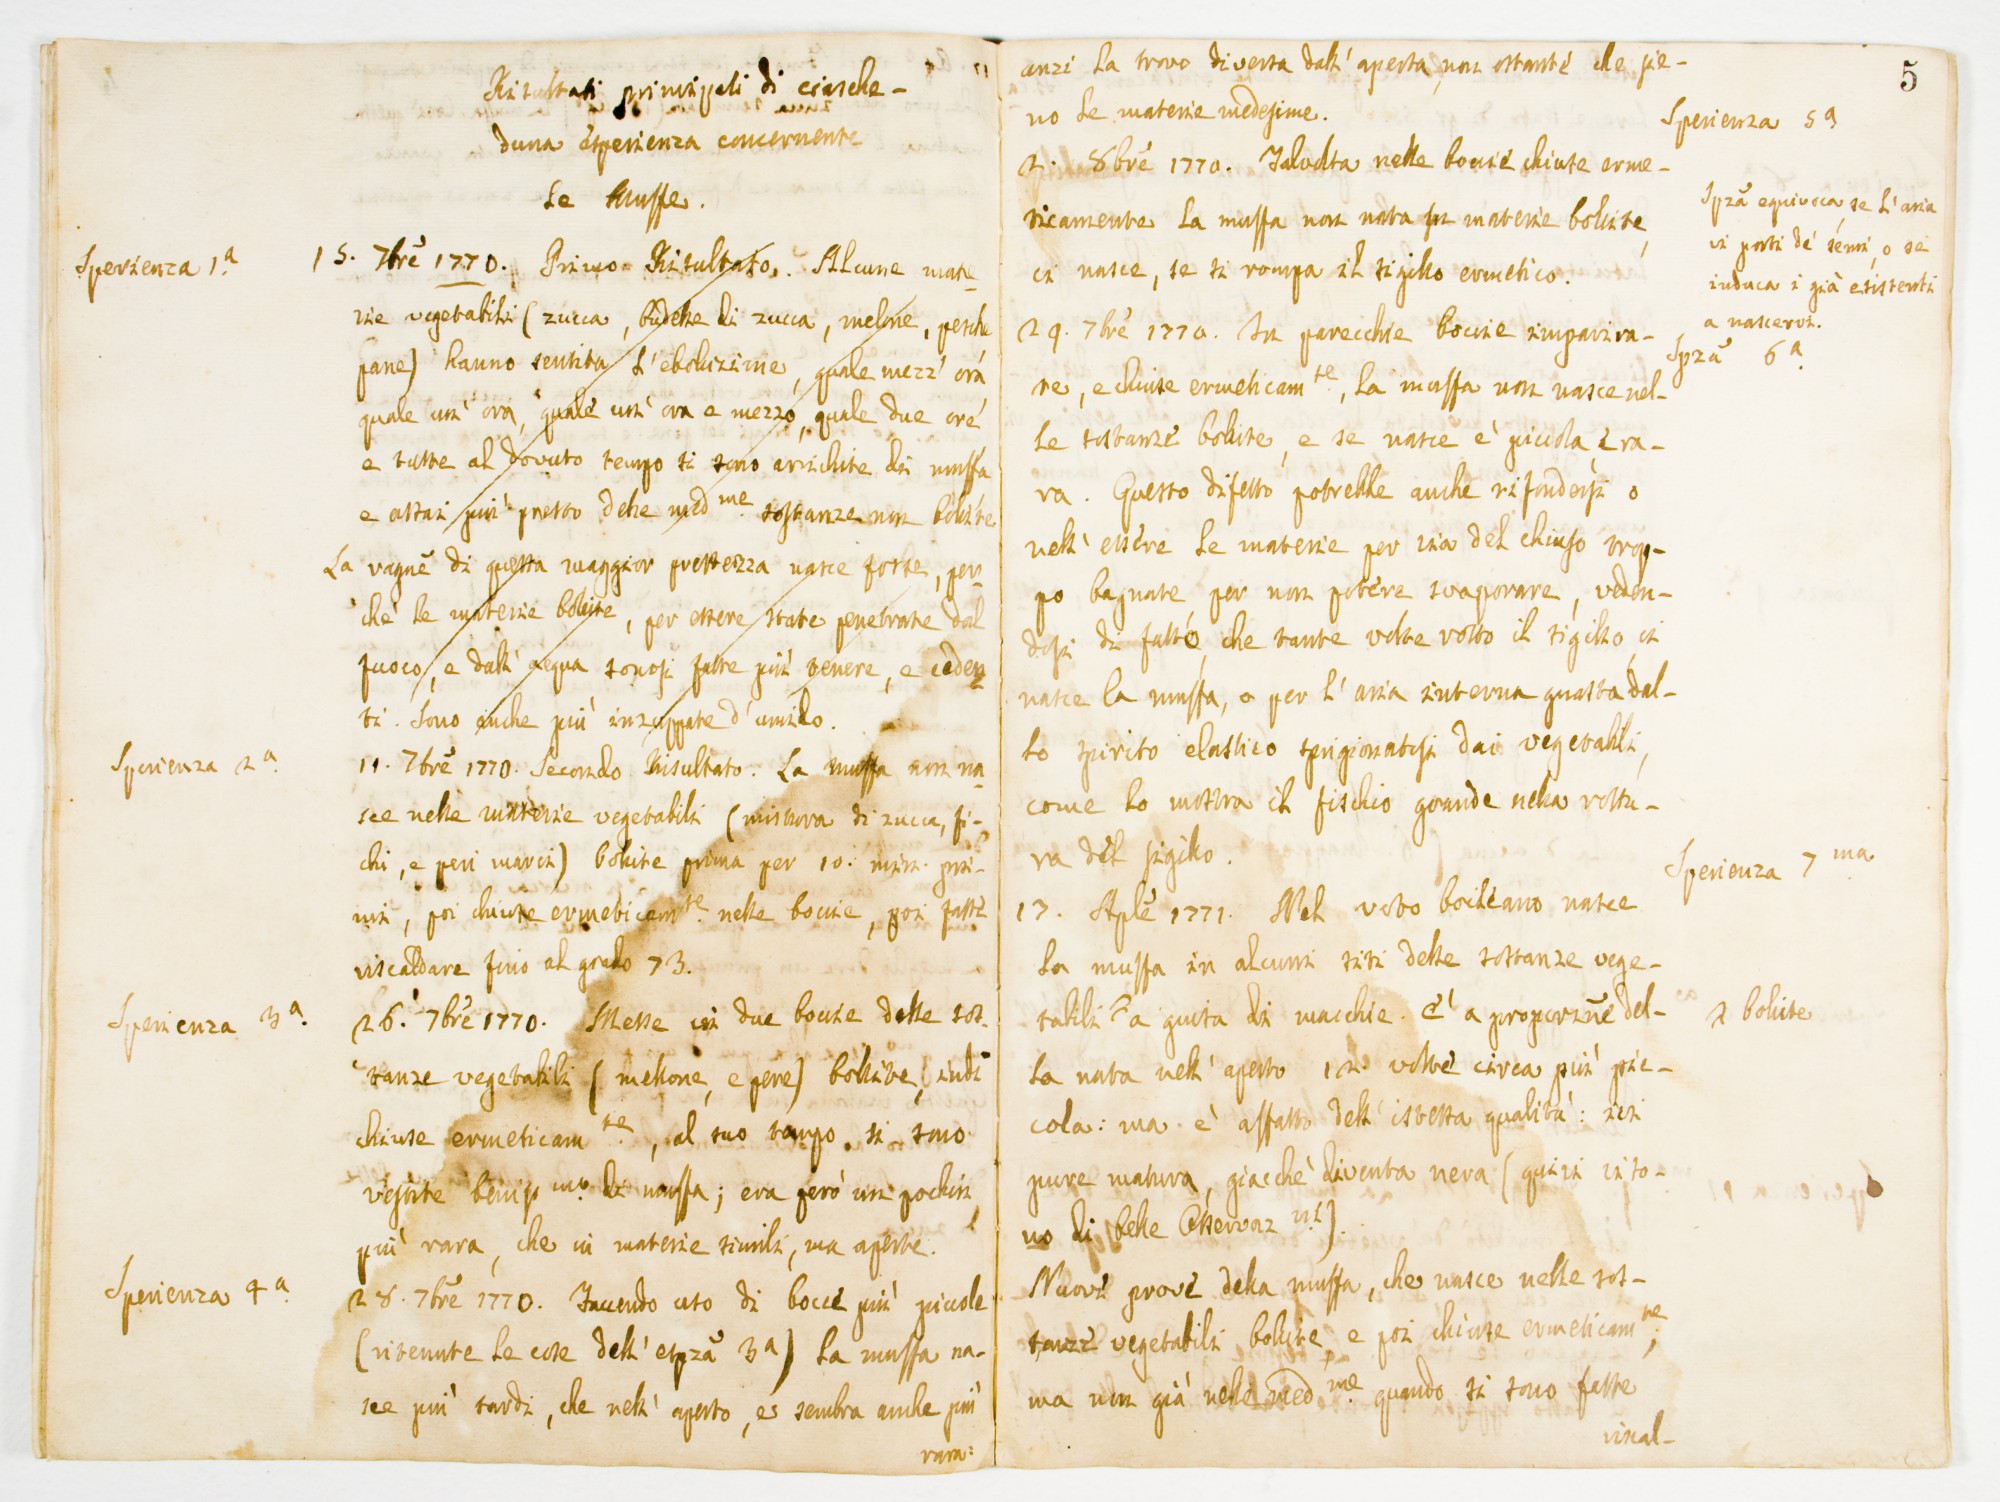 Risultati principali di ciasche-
duna esperienza concernente
le Muffe.
Sperienza 1.a
15. 7bre 1770. Primo Risultato. Alcune mate-
rie vegetabili (zucca, budelle di zucca, melone, pesche
pane) hanno sentita l'ebolizione, quale mezz' ora
quale un' ora, quale un' ora e mezzo, quale due ore
e tutte al dovuto tempo si sono arrichite di muffa
e assai più presto delle med.me sostanze non bollite
La ragne di questa maggior prestezza nasce forse, per-
chè le materie bollite, per essere state penetrate dal
fuoco, e dall' acqua sonosi fatte più tenere, e ceden-
ti. Sono anche più inzuppate d'umido.
Sperienza 2.a
11. 7bre 1770. Secondo Risultato. La muffa non na-
sce nelle materie vegetabili (mistura di zucca, fi-
chi, e peri marci) bollite prima per 10. min. pri-
mi, poi chiuse ermeticam.te nelle boccie, poi fatte
riscaldare fino al grado 73.
Sperienza 3.a
26. 7bre 1770. Messe in due boccie delle sos-
tanze vegetabili (mellone, e pere) bollite, indi
chiuse ermeticam.te, al suo tempo si sono
vestite beniss.mo di muffa; era però un pochin
più rara, che in materie simili, ma aperte.
Sperienza 4.a
28. 7bre 1770. Facendo uso di boccie più piccole
(ritenute le cose dell' espza 3.a) la muffa na-
sce più tardi, che nell' aperto, e sembra anche più
rara:
5
anzi la trovo diversa dall' aperta, non ostante che sie-
no le materie medesime.
Sperienza 5.a
2. 8bre 1770. Talvolta nelle boccie chiuse erme-
ticamente la muffa non nata in materie bollite,
ci nasce, se si rompa il sigillo ermetico.
Spza equivoca, se l'aria
vi porti de' semi, o se
induca i già esistenti
a nascervi.
Spza 6.a
29. 7bre 1770. In parecchie boccie impavira-
te, e chiuse ermeticam.te, la muffa non nasce nel-
le sostanze bollite, e se nasce è piccola, e ra-
ra. Questo difetto potrebbe anche rifondersi o
nell' essere le materie per via del chiuso trop-
po bagnate, per non potere svaporare, veden-
dosi di fatto, che tante volte rotto il sigillo, ci
nasce la muffa, o per l'aria interna guasta dal-
lo spirito elastico sprigionatosi dai vegetabili,
come lo mostra il fischio grande nella rottu-
ra del sigillo.
Sperienza 7.ma
17. Aple 1771. Nel voto boileano nasce
la muffa in alcuni siti delle sostanze vege-
tabili a guisa di macchie. E' a proporzne del-
bollite
la nata nell' aperto 12. volte circa più pic-
cola: ma è affatto dell' istessa qualità: ivi
pure matura, giacchè diventa nera (quivi vi so-
no di belle Osservaz.ni).
Nuove prove della muffa, che nasce nelle sos-
tanze vegetabili bollite, e poi chiuse ermeticam.te;
ma non già nelle med.me quando si sono fatte
riscal-